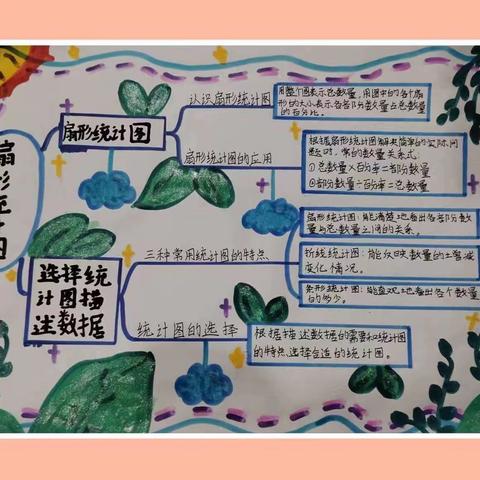 扇形统计图
扇形统计图
认识扇形统计图
用整个圆表示总数量,用圆中的各个扇
形的大小表示各部分数量占总数量
的百分比。
扇形统计图的应用
根据扇形统计图解决简单的实际问
题时,常的数量关系式:
①总数量×百分率=部分数量
②部分数量÷百分率=总数量
选择统
计图描
述数据
三种常用统计图的特点
扇形统计图:能清楚地看出各部分数
量与总数量之间的关系。
折线统计图:能反映数量的土曾减
变化情况。
条形统计图:能直观地看出各个数量
的多少。
统计图的选择
根据描述数据的需要和统计图
的特点选择合适的统计图。